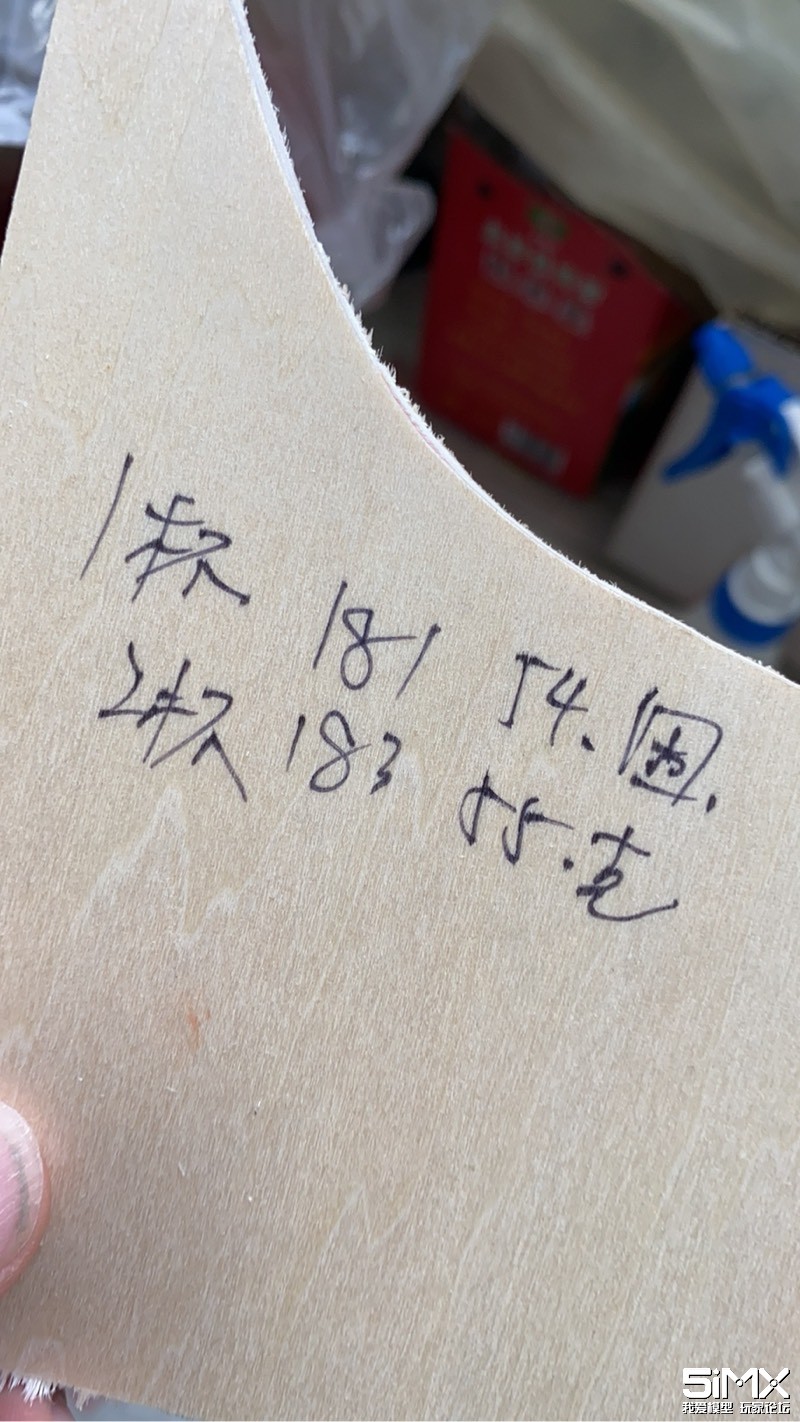 1根 181 54.1困.
2根 183 55.克
5iMX
我爱模型 玩家论坛